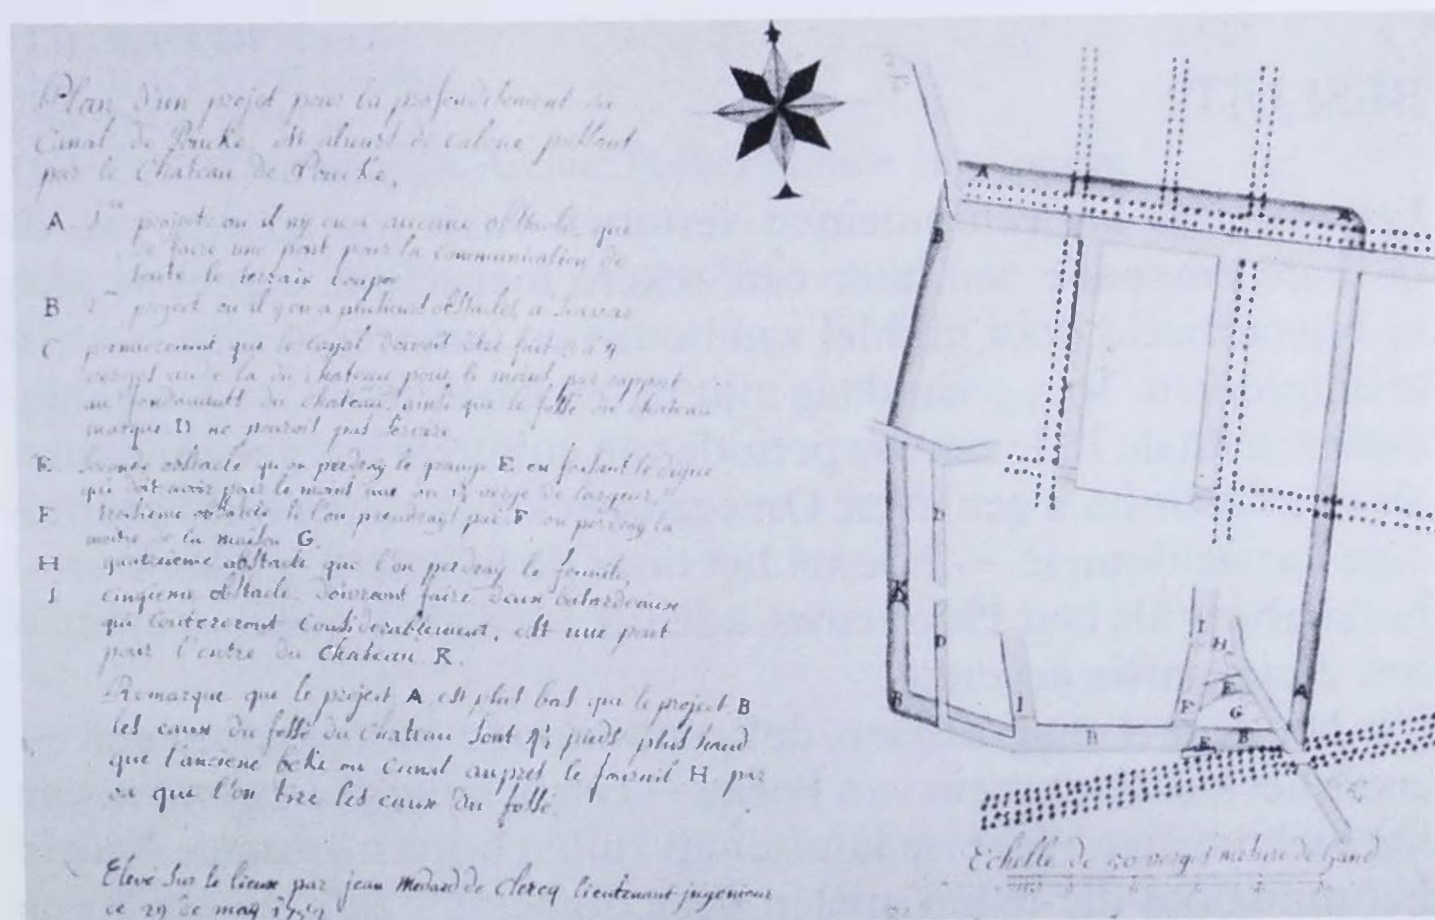 Plan d'un projet pour la profonditement du
Canal de Poucke et aluant de Calene passant
par le Chateau de Poucke,
A 1er projet ou il ny en a aucune obstacle que
de faire une pont pour la communication de
toute le terrain coupee
B 2me project ou il y en a plusieurs obstacles, a savoir
C premierement que le canal doivoit être fait a 4
verges au de la du chateau pour le moins, par rapport
au fondaments du chateau, ainsi que le fossé du chateau
marque D ne pouroit pas servire
E seconde obstacle qu'on perdray le grange E en faisant le digue
qui doit avoir pour le moins une ou 1½ verge de largeur
F troisieme obstacle si l'on prendrayt par F on perdray la
moitie de la maison G
H quatrieme obstacle que l'on perdray le fournile,
I cinqieme obstacle doivront faire deux batardeaux
qui coutereront considerablement, est une pont
pour l'entre du chateau R.
Remarque que le project A est plus bas que le project B
les eaux du fossé du chateau sont 4½ pieds plus haud
que l'anciene beke ou canal aupres le fournil H par
ou que l'on tire les eaux du fossé
Elevé sur le lieux par jean Medard de Clercq lieutenant ingenieur
ce 29 de may
A
A
B
K
D
B
I
B
I
H
E
F
G
B
F
A
Echelle de 50 verges mesure de Gand